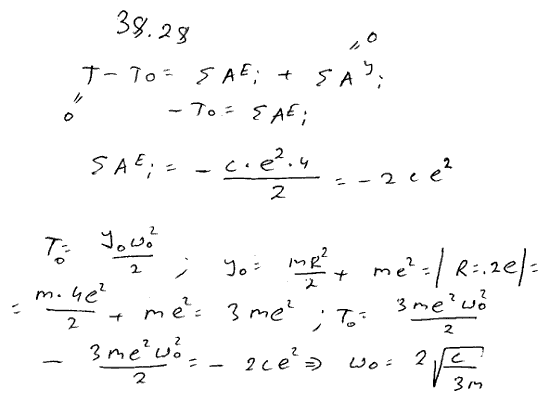 38.28
T - T₀ = Σ A^E_i + Σ A^y_i
0 = 0 =
- T₀ = Σ A^E_i
Σ A^E_i = - (c · e² · 4)/2 = - 2 c e²
T₀ = (y₀ω₀²)/2 ; y₀ = (mR²)/2 + me² = | R = 2e | =
= (m · 4e²)/2 + me² = 3me² ; T₀ = (3me²ω₀²)/2
- (3me²ω₀²)/2 = - 2ce² ⇒ ω₀ = 2√(c/(3m))